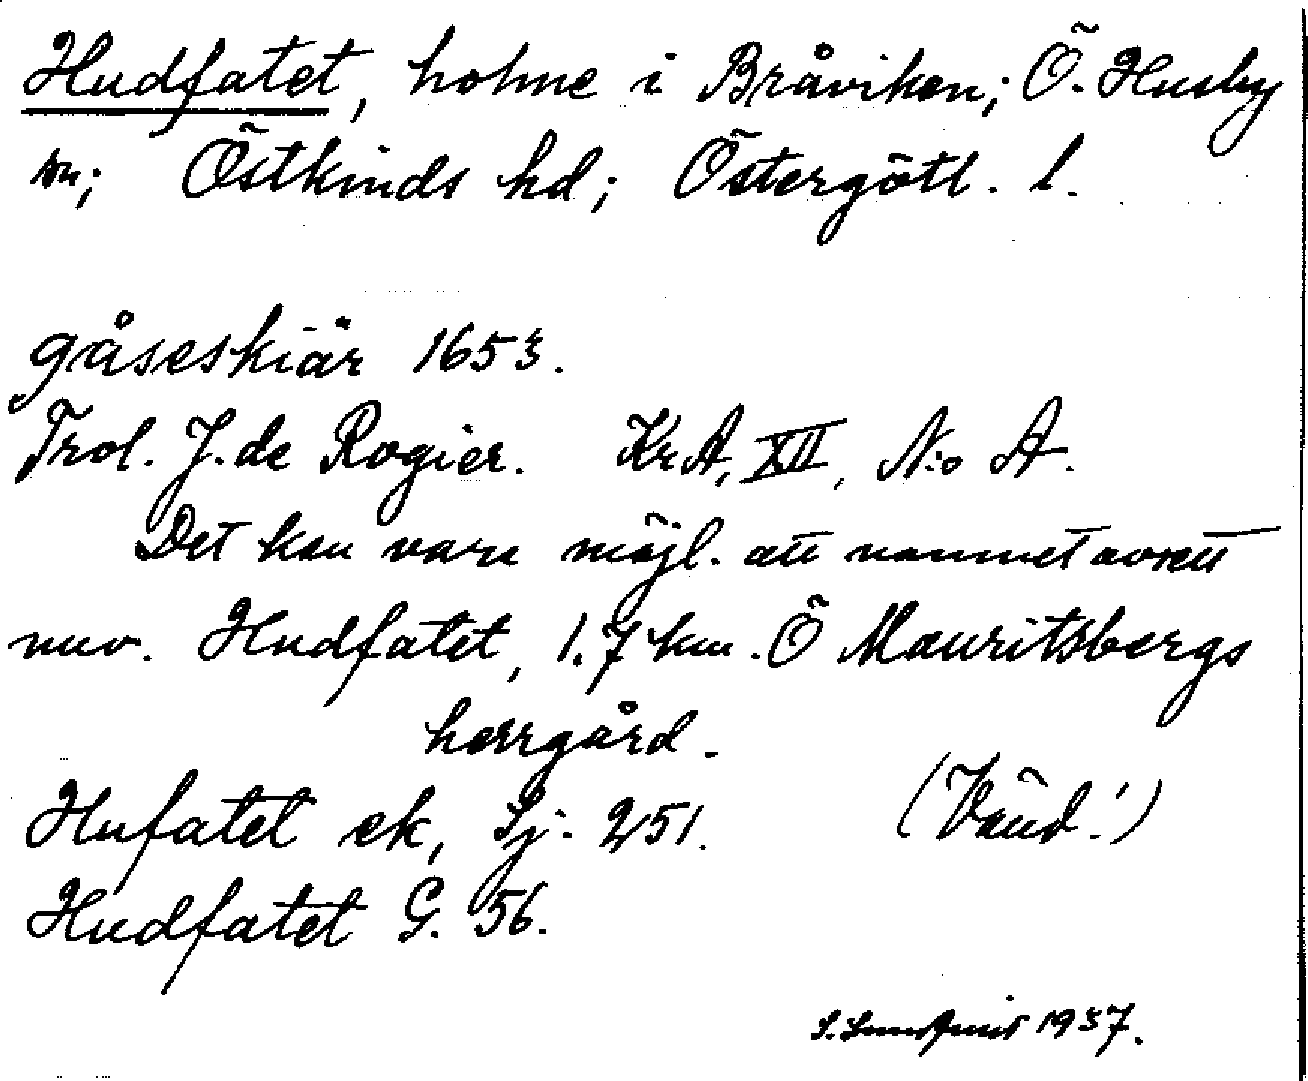 Hudfatet, holme i Bråviken; Ö. Husby
sn; Östkinds hd; Östergötl. l.
gåseskiär 1653.
Trol. J. de Rogier. KrA, XII, N:o A.
Det kan vara möjl. att namnet avsett
nuv. Hudfatet, 1.7 km. Ö Mauritsbergs
herrgård.
Hufatet ek, Sj. 251. (Vänd!)
Hudfatet G. 56.
S. Lundqvist 1937.